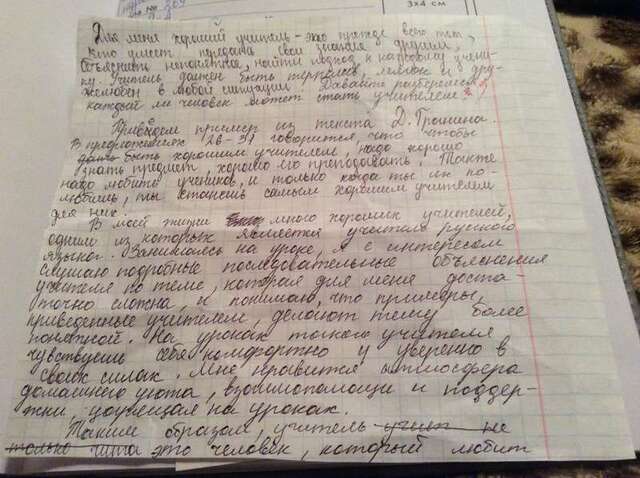 3x4 см
Для меня хороший учитель - это прежде всего тот,
кто умеет передать свои знания другим,
объяснить непонятное, найти подход к каждому учени-
ку. Учитель должен быть терпелив, и дру-
желюбен в любой ситуации. Давайте разберемся
каждый ли человек может стать учителем?
Приведем пример из текста Д. Гранина.
В предложениях (26-31) говорится, что чтобы
быть хорошим учителем, надо хорошо
знать предмет, хорошо его преподавать. Также
надо любить учеников, и только когда ты их по-
любишь, ты станешь самым хорошим учителем
для них.
В моей жизни много хороших учителей,
одним из которых является учитель русского
языка. Занимаясь на уроке, я с интересом
слушаю подробные последовательные объяснения
учителя по теме, которая для меня доста-
точно сложна, и понимаю, что примеры,
приведенные учителем, делают тему более
понятной. На уроках такого учителя
чувствуешь себя комфортно и уверенно в
своих силах. Мне нравится атмосфера
домашнего уюта, взаимопомощи и поддер-
жки, царящая на уроках.
Таким образом, учитель не
только это человек, который любит